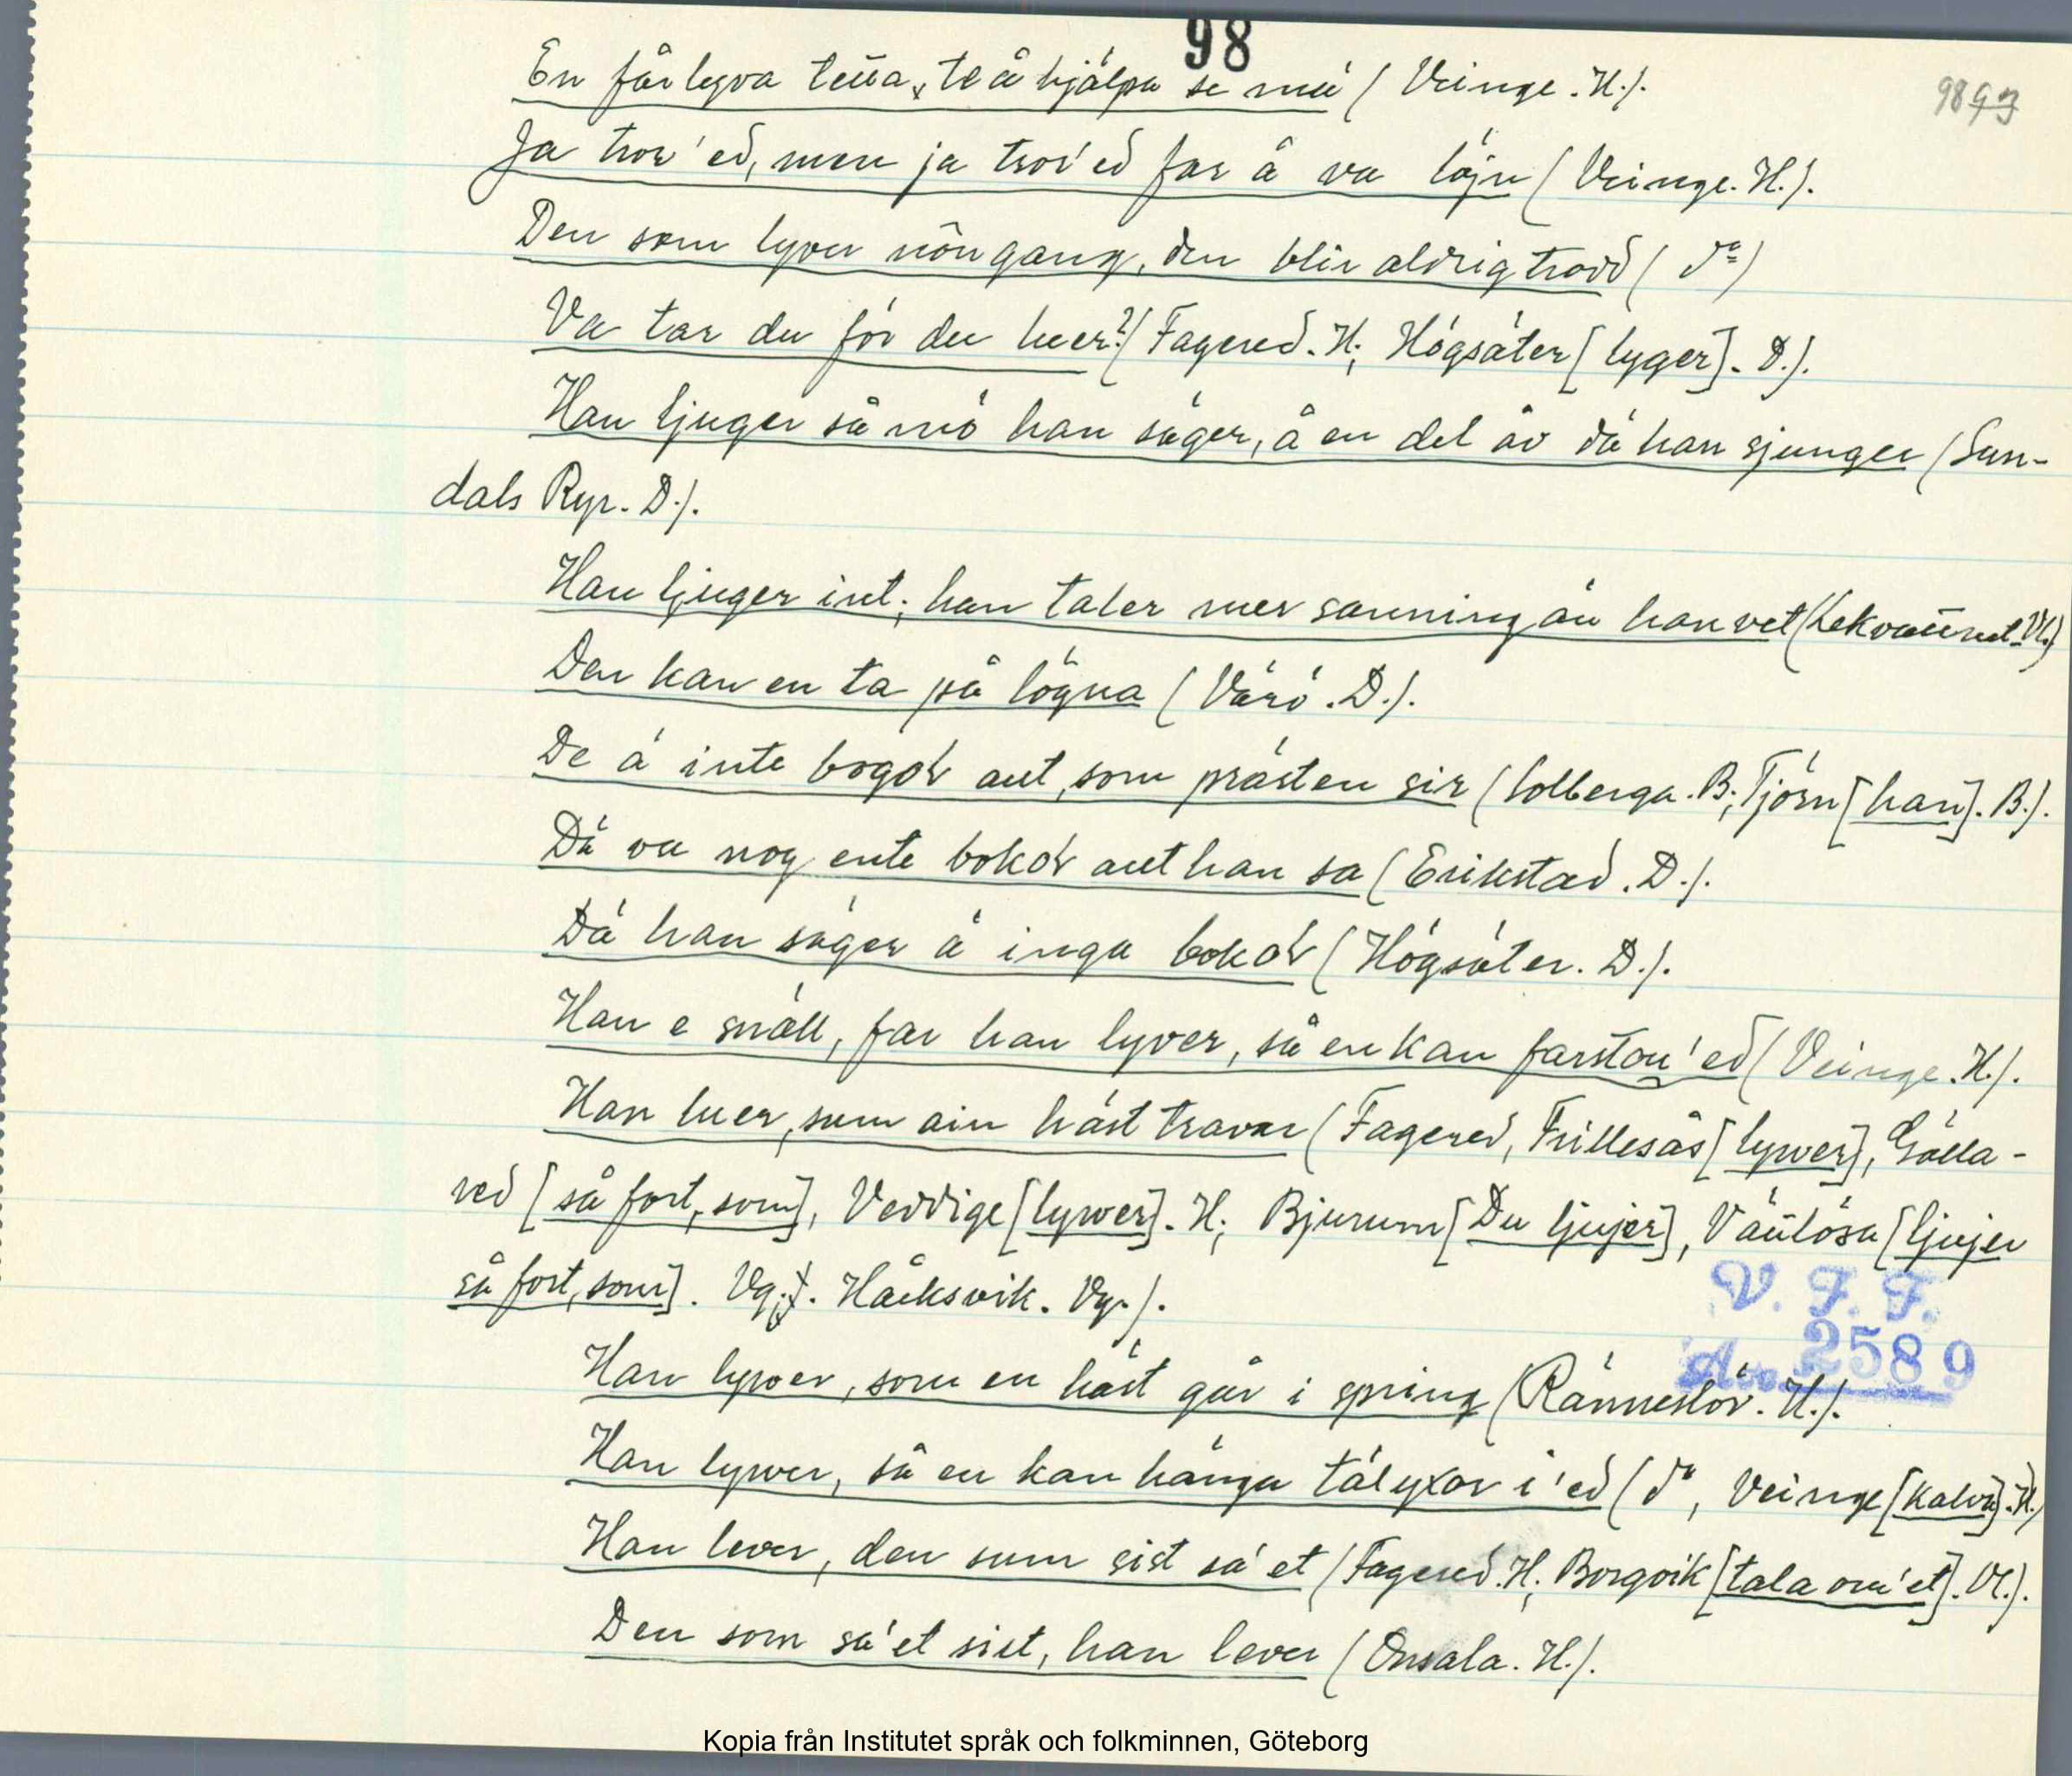 98
98 93
En får lyva te͞na, te å hjälpa se mä (Veinge. H.).
Ja tror 'ed, men ja tror'ed far å va löjn (Veinge. H.).
Den som lyver nôn gang, den blir aldrig trodd (d:o)
Va tar du för du luer? (Fagered. H; Högsäter [lyger]. D.).
Han ljuger så mö han säger, å en del åv dä han sjunger (Sun-
dals Ryr. D.).
Han ljuger int; han taler mer sanning än han vet (Lekvattnet. Vl.)
Den kan en ta på lögna (Värö. D.).
De ä inte bogoɫ aut, som prästen sir (Solberga. B; Tjörn [han]. B.).
Dä va nog ente bokoɫ aut han sa (Erikstad. D.).
Dä han säger ä inga bokoɫ (Högsäter. D.).
Han e snäll, far han lyver, så en kan farston 'ed (Veinge. H.).
Han luer, sum ain häst travar (Fagered, Frillesås [lywer], Gälla-
red [så fort, som], Veddige [lywer]. H; Bjurum [Du ljujer], Vänlösa [ljujer
så fort, som]. Vg.; Håcksvik. Vg.).
V. F. F.
Acc. 2589
Han lywer, som en häst går i spring (Ränneslöv. H.).
Han lywer, så en kan hänga tälyxor i 'ed (d:o, Veinge [kalva]. H.)
Han lever, den sum sist sa' et (Fagered. H; Borgvik [tala om'et]. Vl.).
Den som sa'et sist, han lever (Onsala. H.).
Kopia från Institutet språk och folkminnen, Göteborg